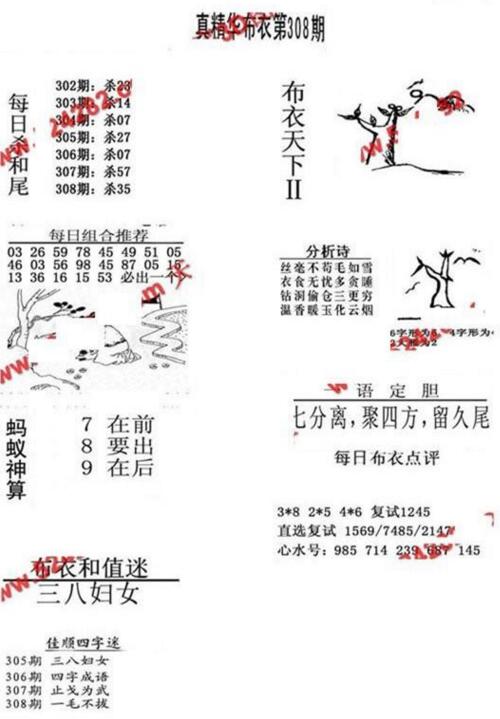 真精华布衣第308期
每日杀和尾
302期：杀23
303期：杀14
304期：杀07
305期：杀27
306期：杀07
307期：杀57
308期：杀35
布衣天下II
每日组合推荐
03 26 59 78 45 49 51 05
46 03 56 98 45 87 05 15
13 36 16 15 53 必出一个
分析诗
丝毫不苟毛如雪
衣食无忧多贪睡
钻洞偷仓三更穷
温香暖玉化云烟
6字形为6 4字形为4
2人形为2
蚂蚁神算
7 在前
8 要出
9 在后
一语定胆
七分离，聚四方，留久尾
每日布衣点评
3*8 2*5 4*6 复试1245
直选复试 1569/7485/2147
心水号：985 714 239 687 145
布衣和值迷
三八妇女
佳顺四字迷
305期 三八妇女
306期 四字成语
307期 止戈为武
308期 一毛不拔